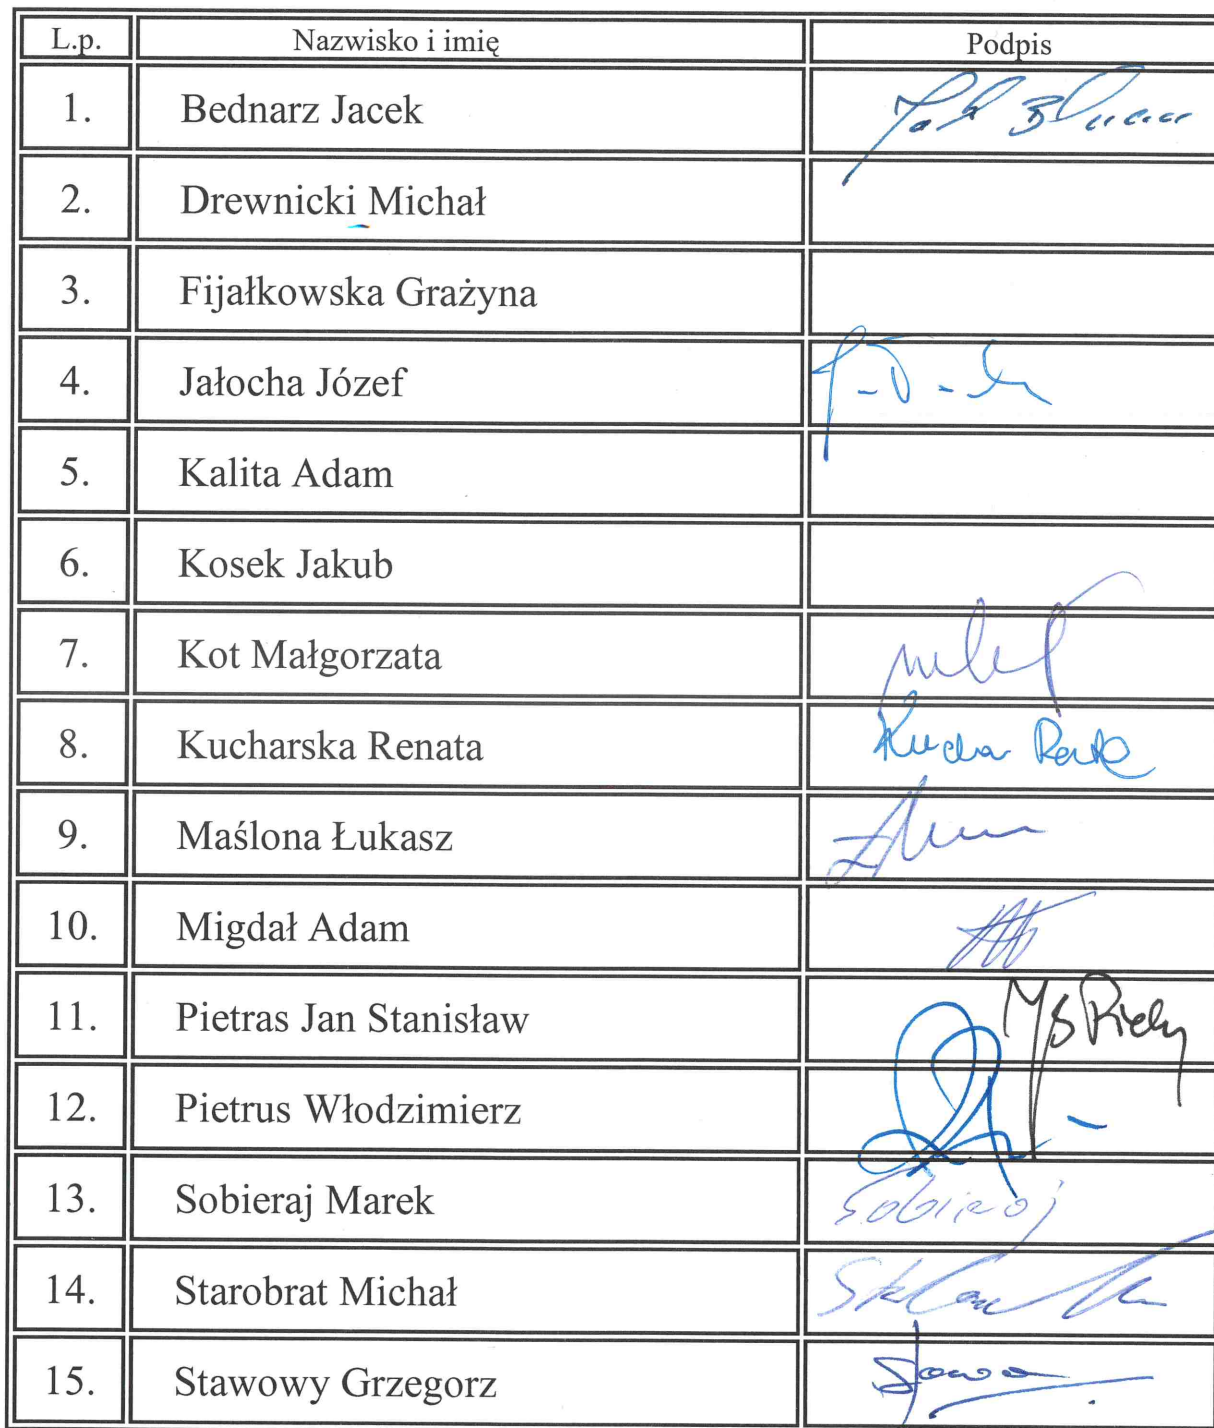 L.p. Nazwisko i imię Podpis
1. Bednarz Jacek
2. Drewnicki Michał
3. Fijałkowska Grażyna
4. Jałocha Józef
5. Kalita Adam
6. Kosek Jakub
7. Kot Małgorzata
8. Kucharska Renata
9. Maślona Łukasz
10. Migdał Adam
11. Pietras Jan Stanisław
12. Pietrus Włodzimierz
13. Sobieraj Marek Sobieraj
14. Starobrat Michał
15. Stawowy Grzegorz